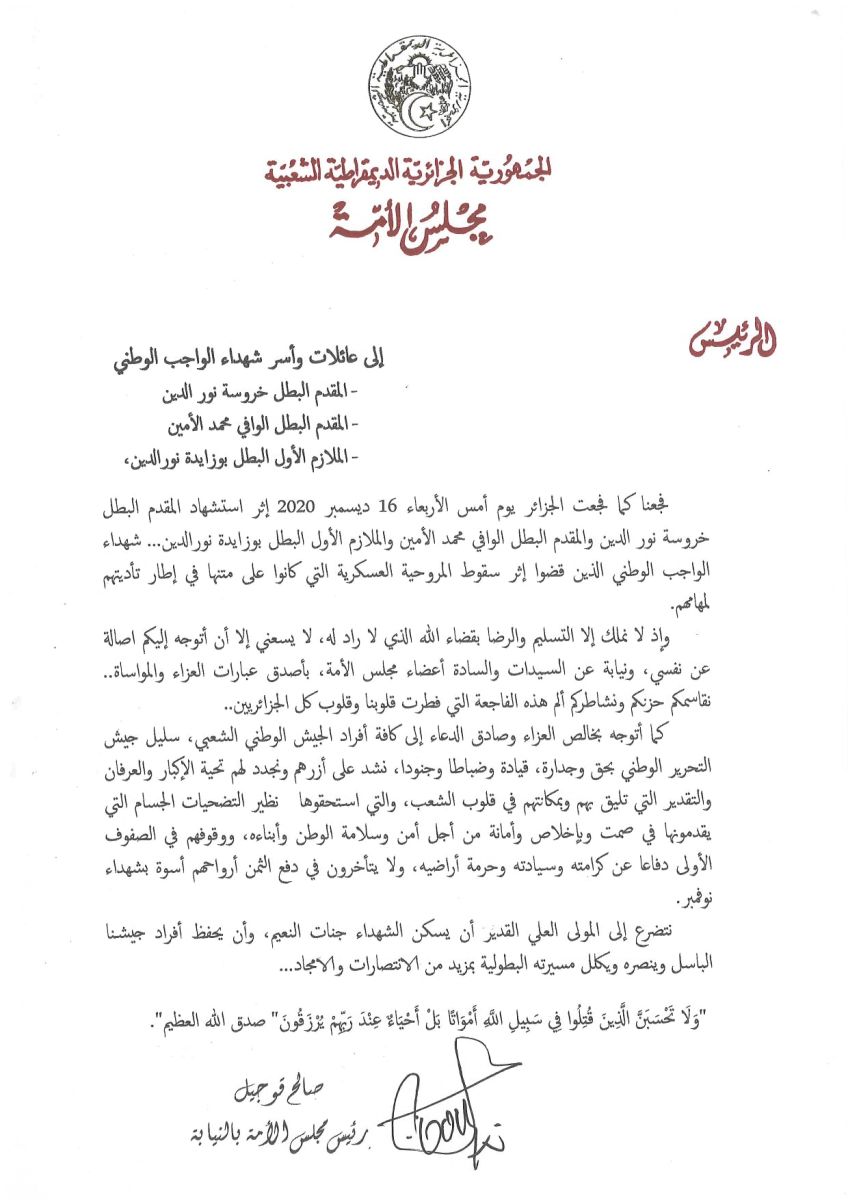 الجمهورية الجزائرية الديمقراطية الشعبية
الجمهوريّة الجزائريّة الديمقراطيّة الشعبيّة
مجلس الأمّة
الرئيس
إلى عائلات وأسر شهداء الواجب الوطني
- المقدم البطل خروسة نور الدين
- المقدم البطل الوافي محمد الأمين
- الملازم الأول البطل بوزايدة نورالدين،
فجعنا كما فجعت الجزائر يوم أمس الأربعاء 16 ديسمبر 2020 إثر استشهاد المقدم البطل
خروسة نور الدين والمقدم البطل الوافي محمد الأمين والملازم الأول البطل بوزايدة نورالدين... شهداء
الواجب الوطني الذين قضوا إثر سقوط المروحية العسكرية التي كانوا على متنها في إطار تأديتهم
لمهامهم.
وإذ لا نملك إلا التسليم والرضا بقضاء الله الذي لا راد له، لا يسعني إلا أن أتوجه إليكم اصالة
عن نفسي، ونيابة عن السيدات والسادة أعضاء مجلس الأمة، بأصدق عبارات العزاء والمواساة..
نقاسمكم حزنكم ونشاطركم ألم هذه الفاجعة التي فطرت قلوبنا وقلوب كل الجزائريين..
كما أتوجه بخالص العزاء وصادق الدعاء إلى كافة أفراد الجيش الوطني الشعبي، سليل جيش
التحرير الوطني بحق وجدارة، قيادة وضباطا وجنودا، نشد على أزرهم ونجدد لهم تحية الإكبار والعرفان
والتقدير التي تليق بهم وبمكانتهم في قلوب الشعب، والتي استحقوها نظير التضحيات الجسام التي
يقدمونها في صمت وبإخلاص وأمانة من أجل أمن وسلامة الوطن وأبناءه، ووقوفهم في الصفوف
الأولى دفاعا عن كرامته وسيادته وحرمة أراضيه، ولا يتأخرون في دفع الثمن أرواحهم أسوة بشهداء
نوفمبر.
نتضرع إلى المولى العلي القدير أن يسكن الشهداء جنات النعيم، وأن يحفظ أفراد جيشنا
الباسل وينصره ويكلل مسيرته البطولية بمزيد من الانتصارات والامجاد...
"وَلَا تَحْسَبَنَّ الَّذِينَ قُتِلُوا فِي سَبِيلِ اللَّهِ أَمْوَاتًا بَلْ أَحْيَاءٌ عِنْدَ رَبِّهِمْ يُرْزَقُونَ" صدق الله العظيم".
صالح قوجيل
رئيس مجلس الأمة بالنيابة